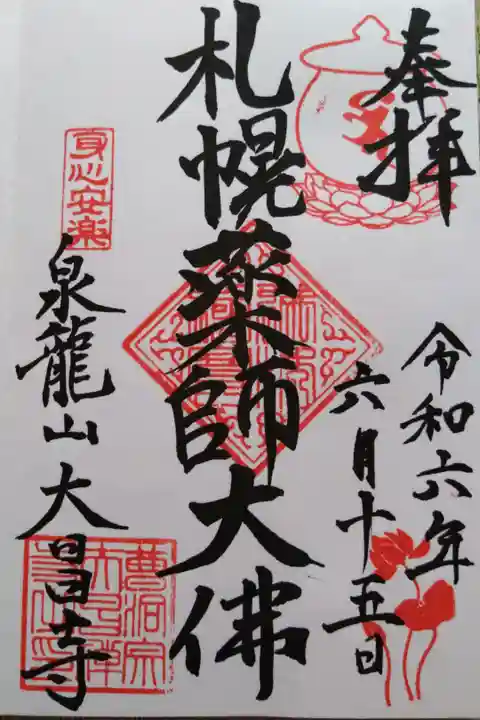 奉拝
令和六年
六月十五日
札幌薬師大佛
身心安楽
泉龍山大昌寺